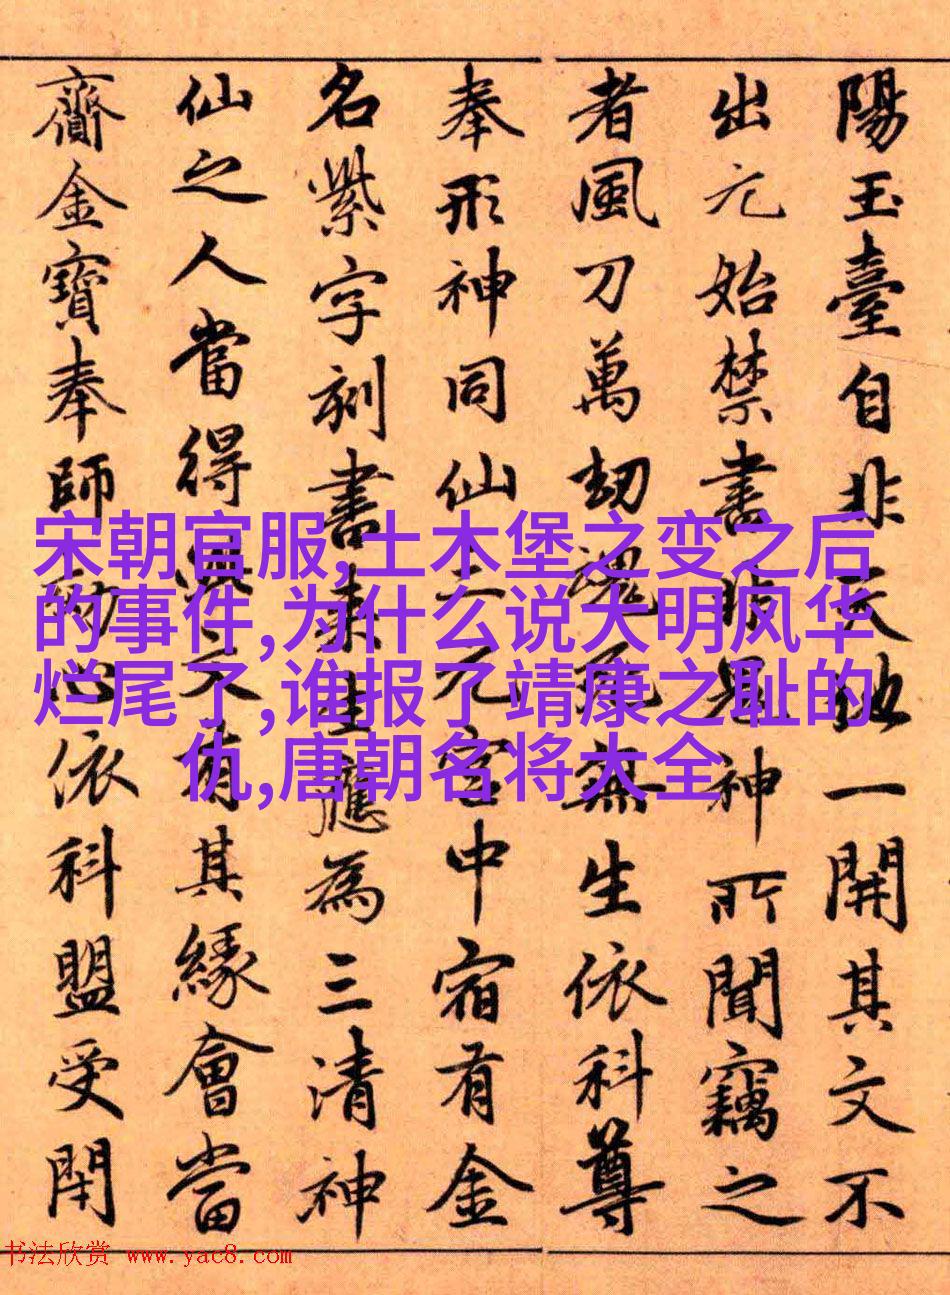 陽玉臺自非天地一開其文不
出元始禁書非鬼神所聞竊之
者風刀萬劫魂死無生依科尊
奉形神同仙上元宮中宿有金
名紫字刻書來生應為三清神
仙之人當得文有其緣會當
齎金寶奉師心依科盟受閇
宋朝官服,土木堡之变之后
的事件,为什么说大明风华
烂尾了,谁报了靖康之耻的
仇,唐朝名将大全
书法欣赏 www.yac8.com